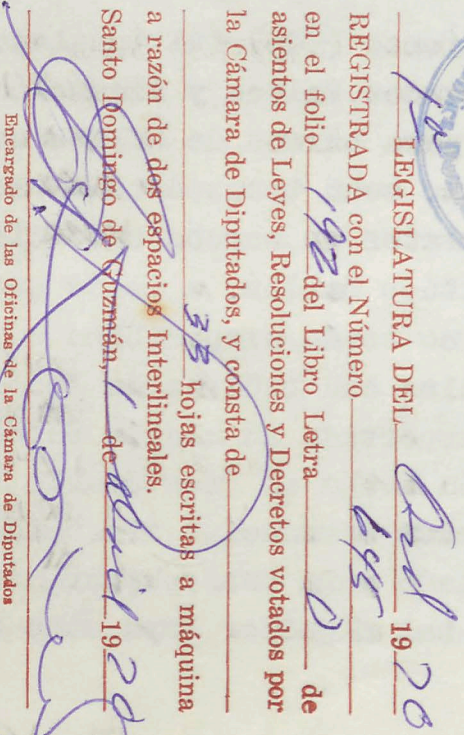 1ra LEGISLATURA DEL Ord 1970
REGISTRADA con el Número 645
en el folio 192 del Libro Letra D de
asientos de Leyes, Resoluciones y Decretos votados por
la Cámara de Diputados, y consta de
33 hojas escritas a máquina
a razón de dos espacios Interlineales.
Santo Domingo de Guzmán, 1 de Abril 1920
Encargado de las Oficinas de la Cámara de Diputados